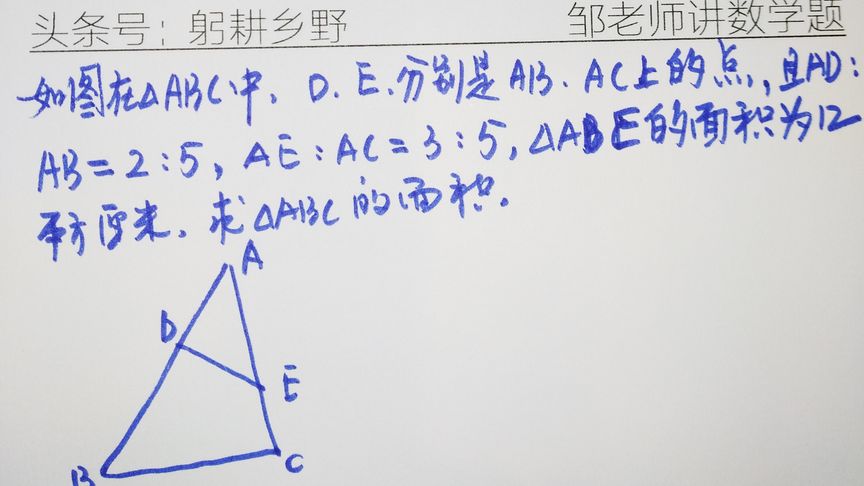 头条号：躬耕乡野 邹老师讲数学题
如图在△ABC中，D、E、分别是AB、AC上的点，且AD：
AB=2：5，AE：AC=3：5，△A E的面积为12
平方厘米、求△ABC的面积。
A
D
E
B
C